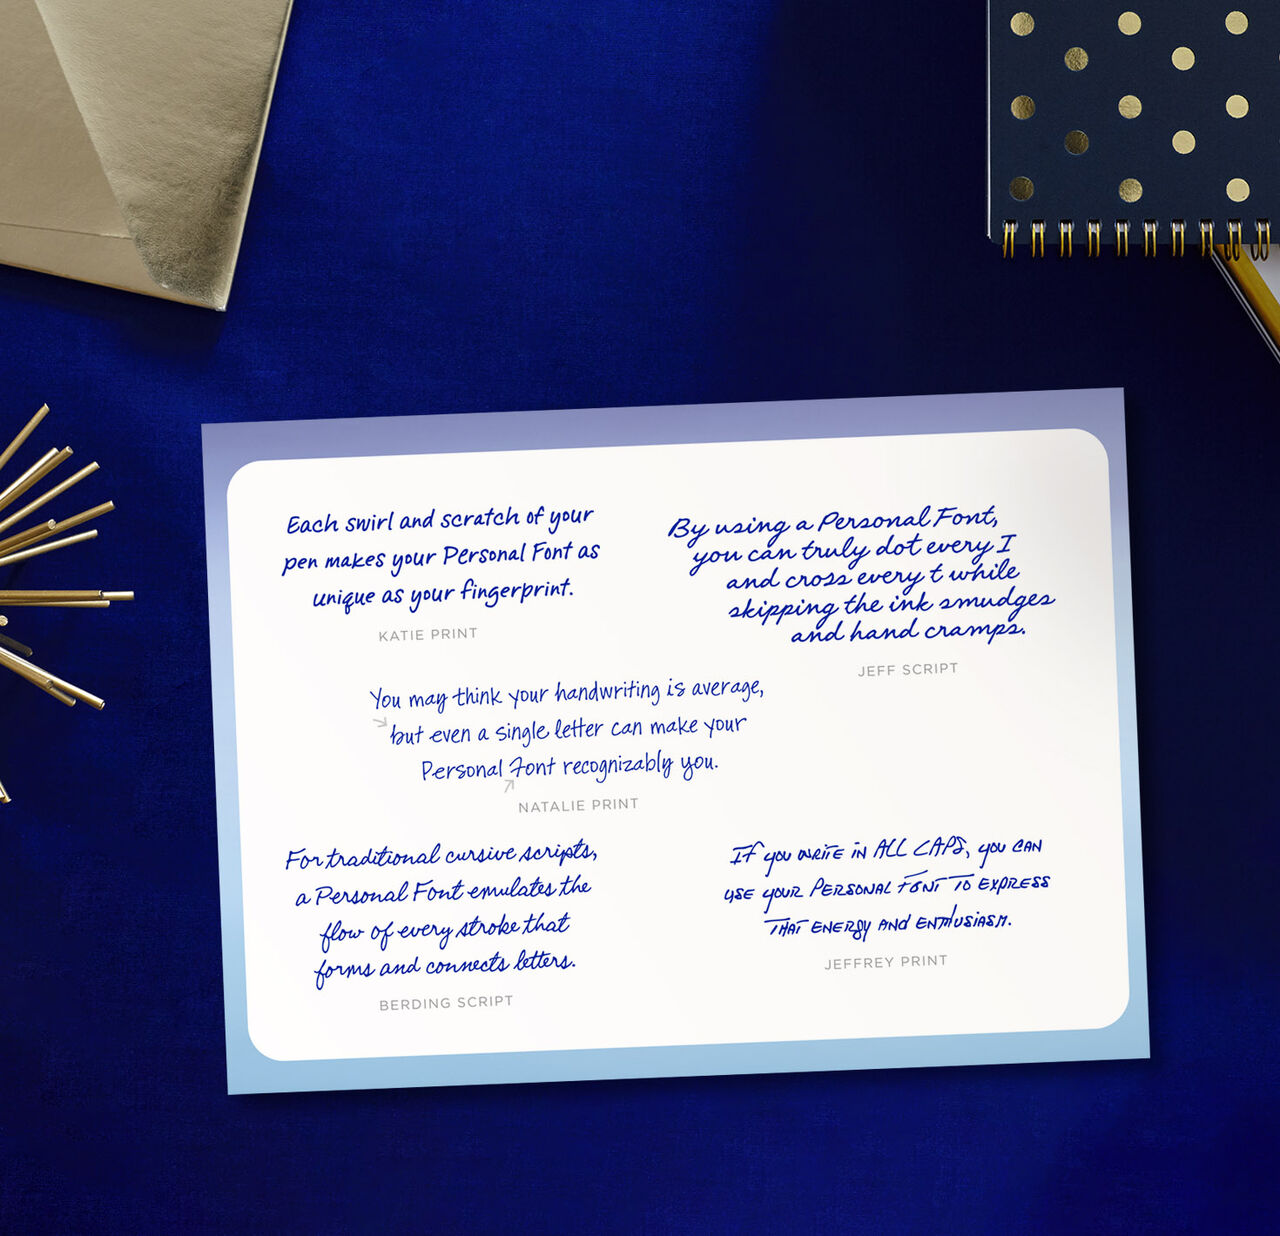 Each swirl and scratch of your
pen makes your Personal Font as
unique as your fingerprint.
KATIE PRINT
By using a Personal Font,
you can truly dot every I
and cross every t while
skipping the ink smudges
and hand cramps.
JEFF SCRIPT
You may think your handwriting is average,
but even a single letter can make your
Personal Font recognizably you.
NATALIE PRINT
For traditional cursive scripts,
a Personal Font emulates the
flow of every stroke that
forms and connects letters.
BERDING SCRIPT
IF you WRITE IN ALL CAPS, you CAN
USE yOUR PERSONAL FONT TO EXPRESS
THAT ENERGy AND ENTHUSIASM.
JEFFREY PRINT